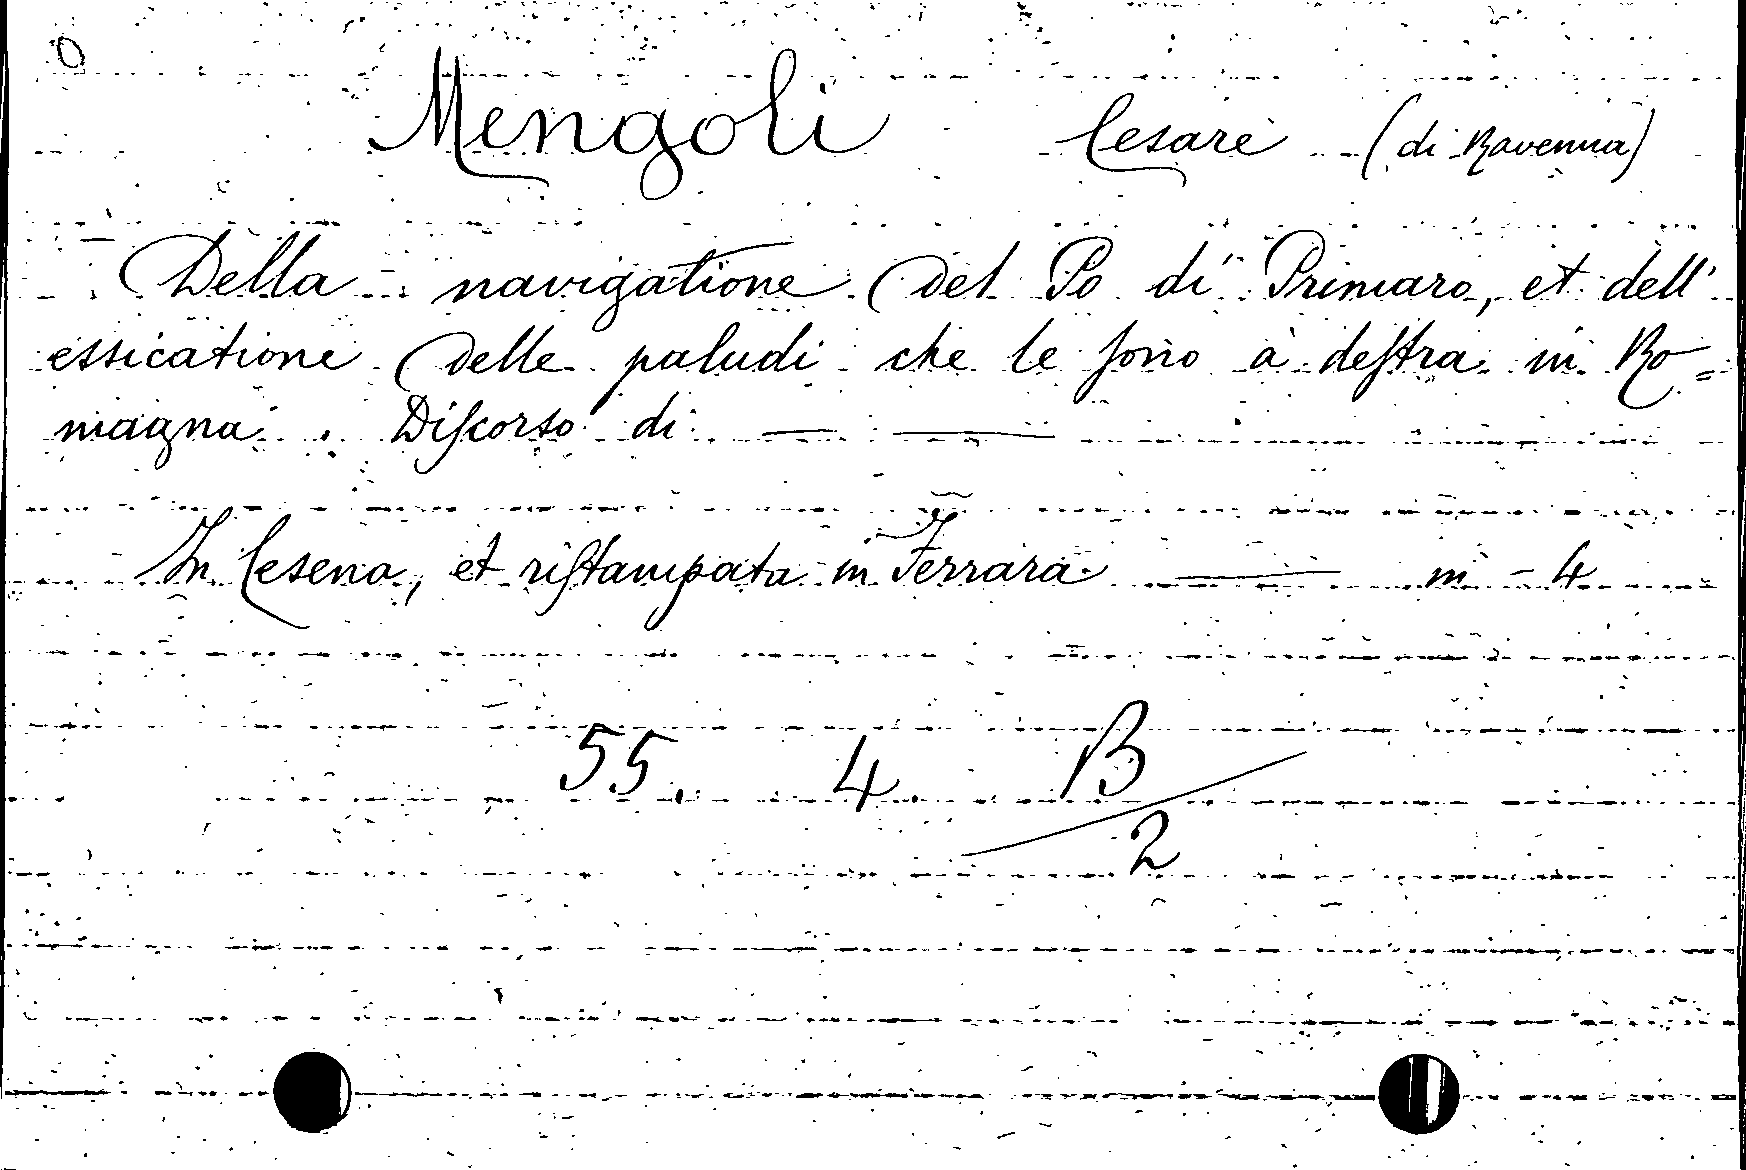 Mengoli Cesare (di Ravenna)
Della navigatione del Po di Primaro, et dell'
essicatione delle paludi che le sono à destra in Ro=
magna. Discorso di — —
In Cesena, et ristampata in Ferrara — in - 4
55. 4 B
2